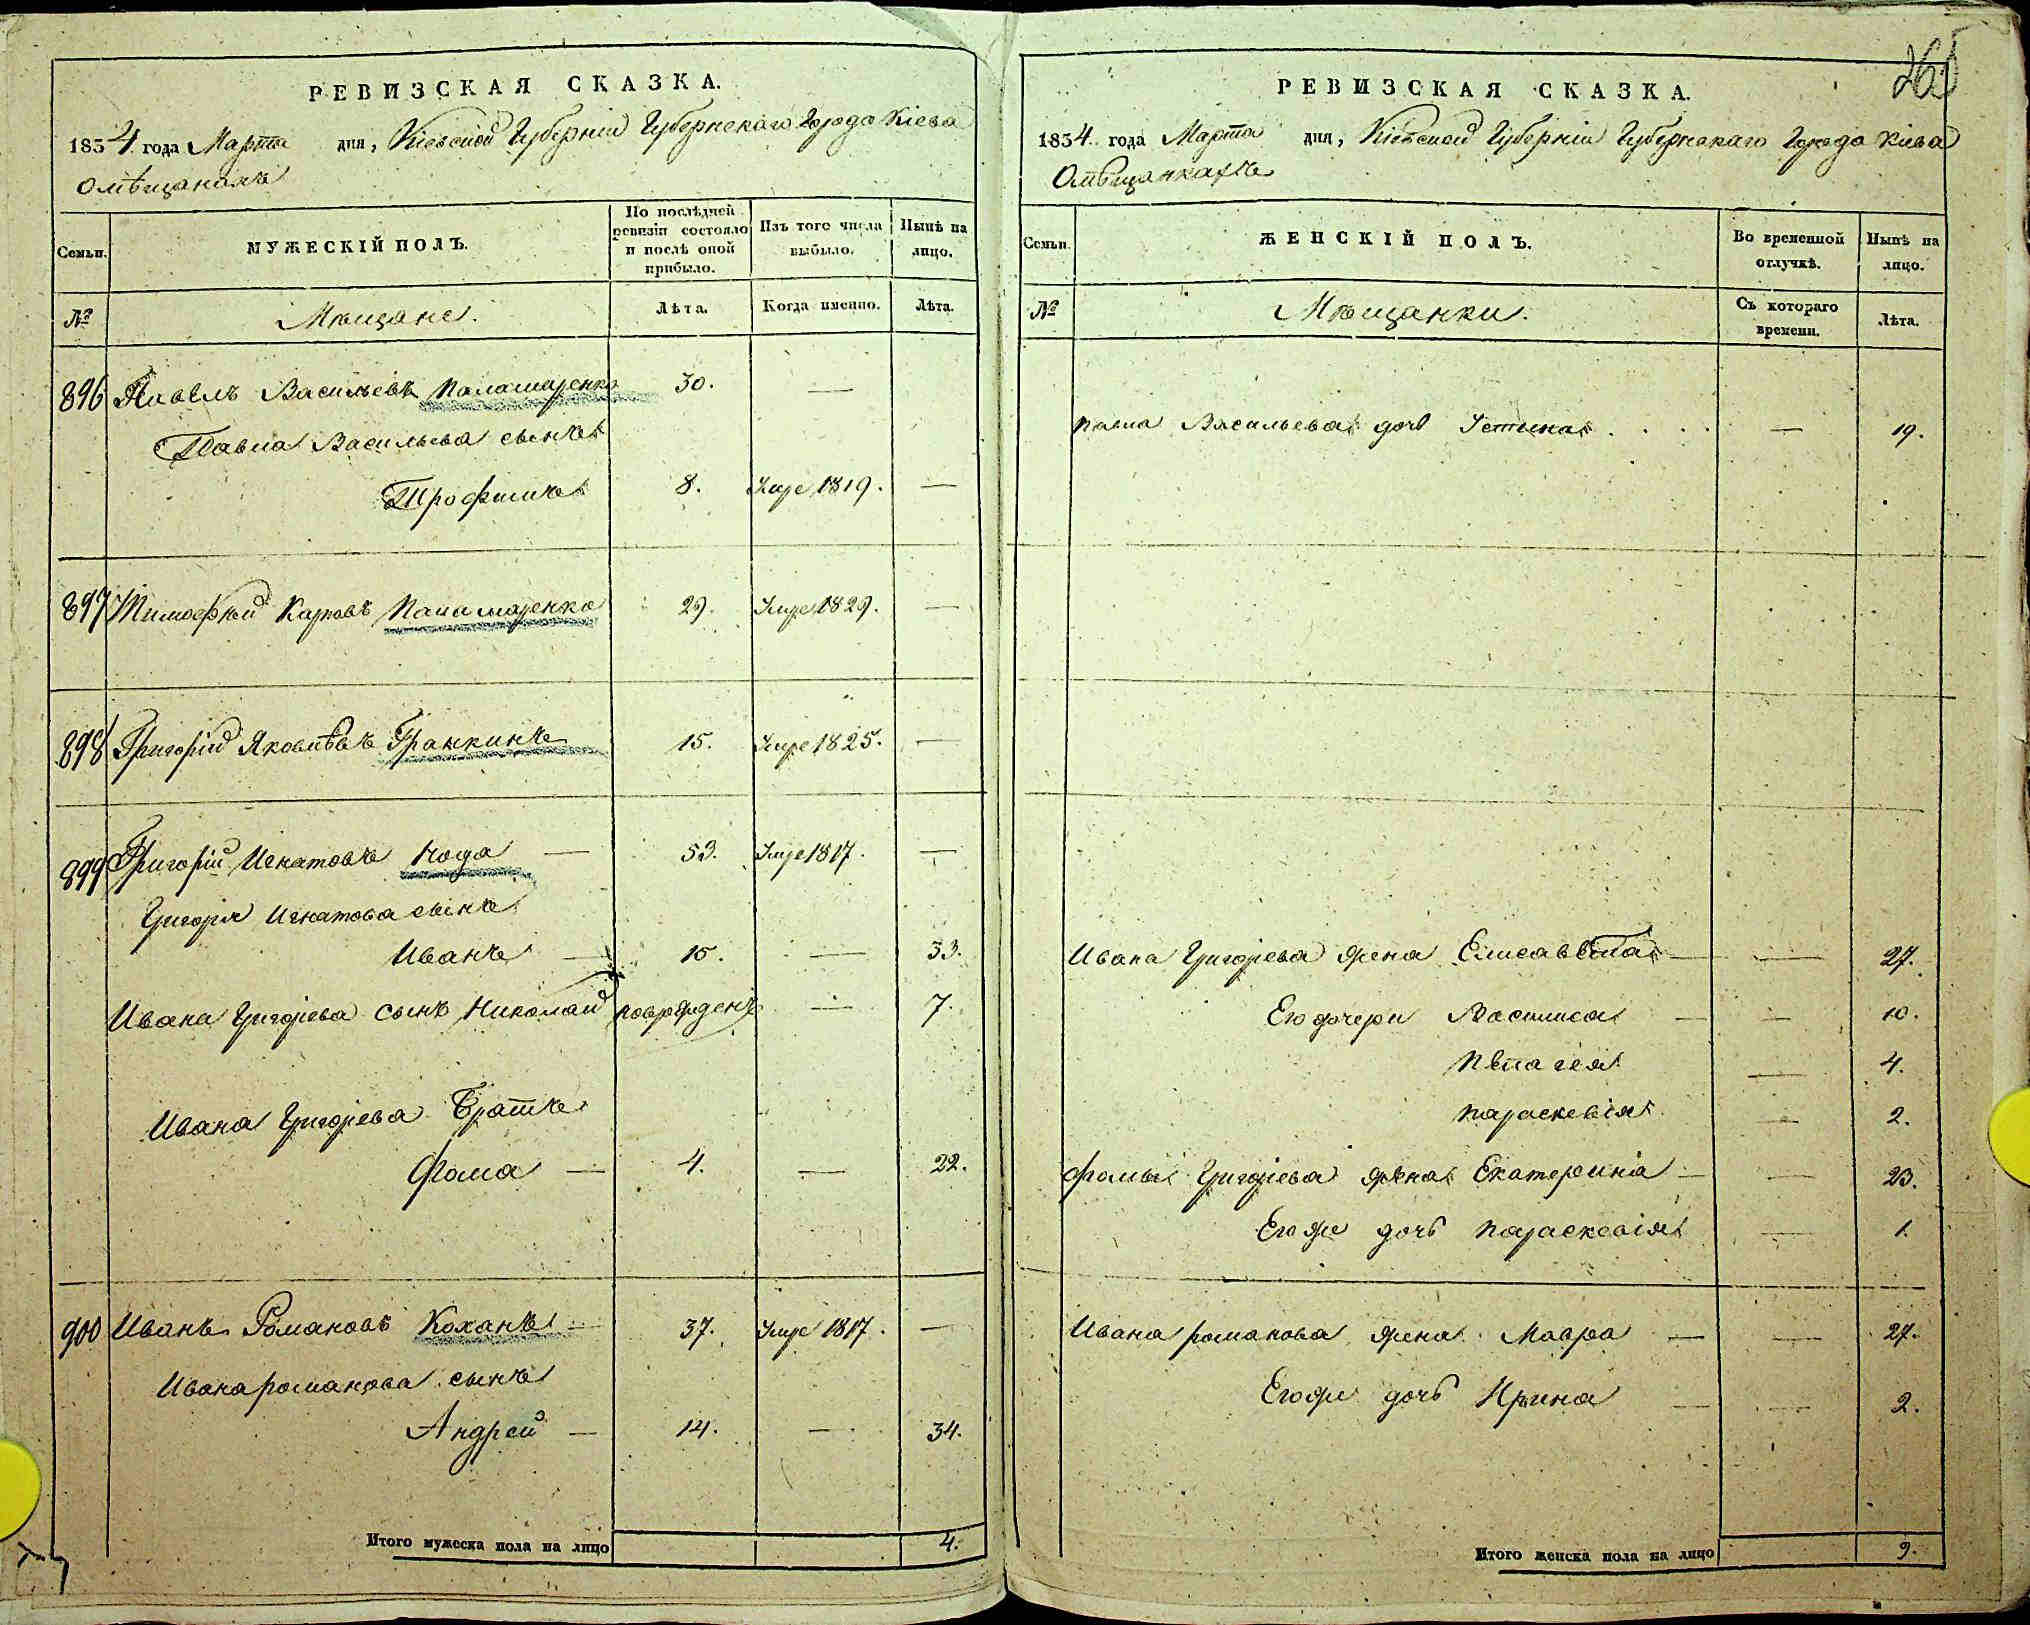 РЕВИЗСКАЯ СКАЗКА.
1834 года Марта дня, Кіевской Губерніи Губернскаго Города Кіева
О мѣщанахъ
Семьи.
МУЖЕСКІЙ ПОЛЪ.
По послѣдней ревизіи состояло и послѣ оной прибыло.
Изъ того числа выбыло.
Нынѣ на лицо.
№
Мѣщане.
Лѣта.
Когда именно.
Лѣта.
896 Павелъ Васильевъ Паламаренко 30. —
Павла Васильева сынъ
Трофимъ 8. Умре 1819. —
897 Тимофѣй Карповъ Паламаренко 29. Умре 1829. —
898 Григорій Яковлѣвъ Гранкинъ 15. Умре 1825. —
899 Григорій Игнатовъ Нода — 53. Умре 1817. —
Григорія Игнатова сынъ
Иванъ — 15. — 33.
Ивана Григорьева сынъ Николай новорожденъ — 7.
Ивана Григорьева Братъ
Фома — 4. — 22.
900 Иванъ Романовъ Коханъ — 37. Умре 1817. —
Ивана романова сынъ
Андрей — 14. — 34.
Итого мужеска пола на лицо 4.
265
РЕВИЗСКАЯ СКАЗКА.
1834. года Марта дня, Кіевской Губерніи Губернскаго Города Кіева
О мѣщанкахъ
Семьи.
ЖЕНСКІЙ ПОЛЪ.
Во временной отлучкѣ.
Нынѣ на лицо.
№
Мѣщанки.
Съ котораго времени.
Лѣта.
Павла Васильева дочь Устина — 19.
Ивана Григорьева жена Елисавѣта — — 27.
Его дочери Василиса — — 10.
Пѣлагея — 4.
Параскевія — 2.
Фомы Григорьева жена Екатерина — — 23.
Его же дочь Параскевія — 1.
Ивана романова жена Мавра — — 27.
Его же дочь Ирина — — 2.
Итого женска пола на лицо 9.